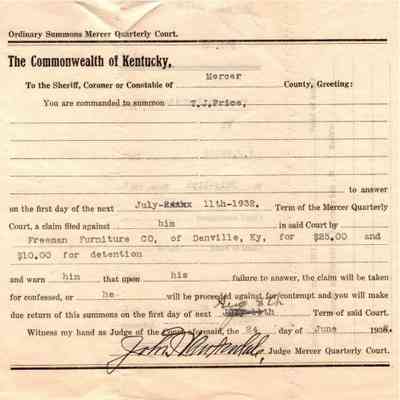 Ordinary Summons Mercer Quarterly Court.
The Commonwealth of Kentucky,
To the Sheriff, Coroner or Constable of Mercer County, Greeting:
You are commanded to summon T.J.Price,
to answer
on the first day of the next July 11th-1932, Term of the Mercer Quarterly
Court, a claim filed against him in said Court by
Freeman Furniture CO, of Danville, Ky, for $25.00 and
$10.00 for detention
and warn him that upon his failure to answer, the claim will be taken
for confessed, or he will be proceeded against for contempt and you will make
Aug 8th
due return of this summons on the first day of next July 11th Term of said Court.
Witness my hand as Judge of the Court aforesaid, the 24 day of June 193
Judge Mercer Quarterly Court.